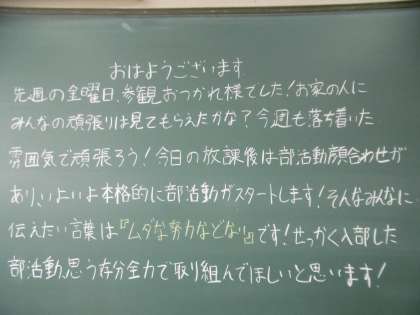 おはようございます
先週の金曜日、参観おつかれ様でした！お家の人に
みんなの頑張りは見てもらえたかな？今週も落ち着いた
雰囲気で頑張ろう！今日の放課後は部活動顔合わせが
あり、いよいよ本格的に部活動がスタートします！そんなみんなに
伝えたい言葉は『ムダな努力などない』です！せっかく入部した
部活動、思う存分全力で取り組んでほしいと思います！